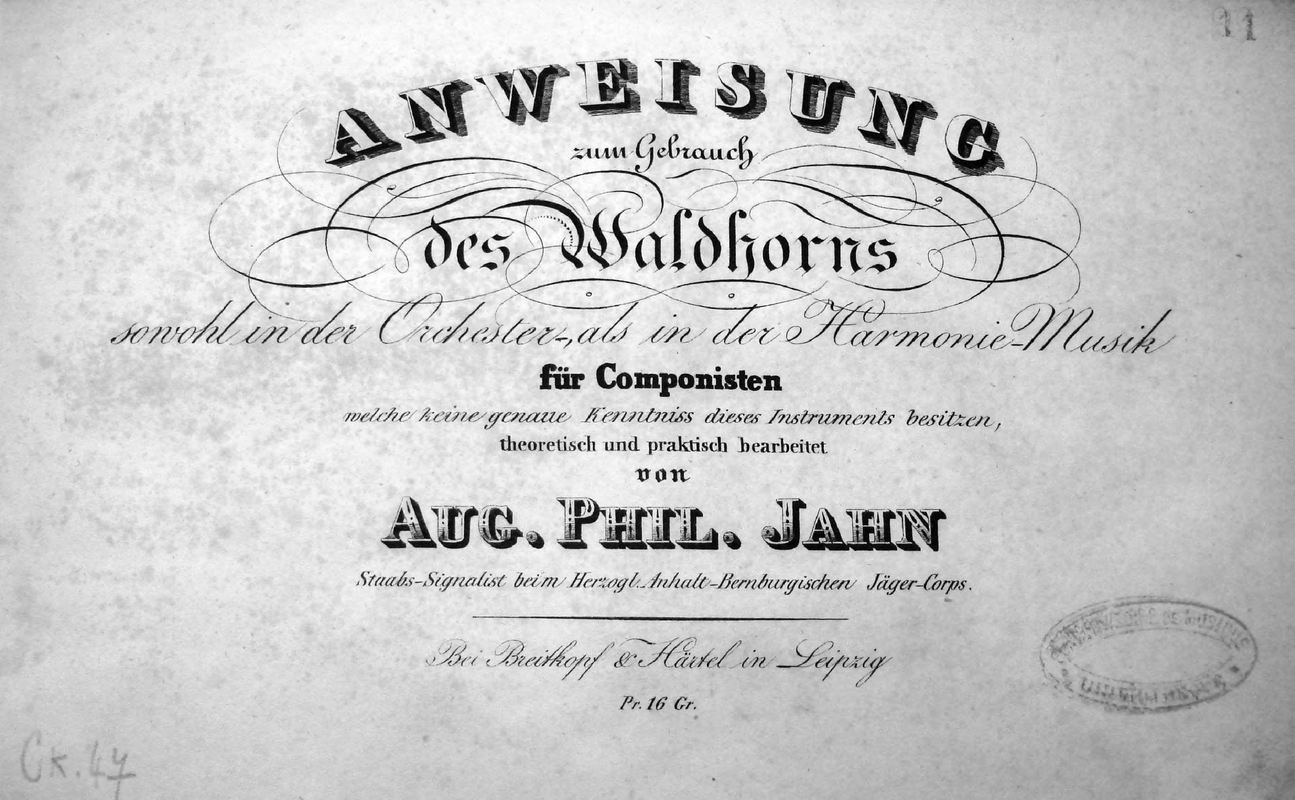 11
ANWEISUNG
zum Gebrauch
des Waldhorns
sowohl in der Orchester-, als in der Harmonie-Musik
für Componisten
welche keine genaue Kenntniss dieses Instruments besitzen,
theoretisch und praktisch bearbeitet
von
AUG. PHIL. JAHN
Staabs-Signalist beim Herzogl. Anhalt-Bernburgischen Jäger-Corps.
Bei Breitkopf & Härtel in Leipzig
Pr. 16 Gr.
Ck. 47